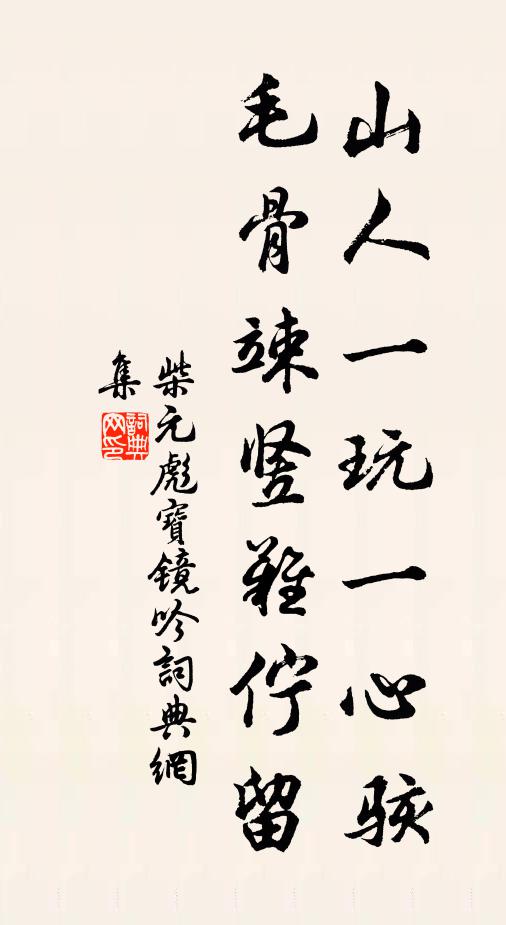 山人一玩一心骇
毛骨竦竖難佇留
柴元彪寶鏡吟詞典網
集
詞典网印